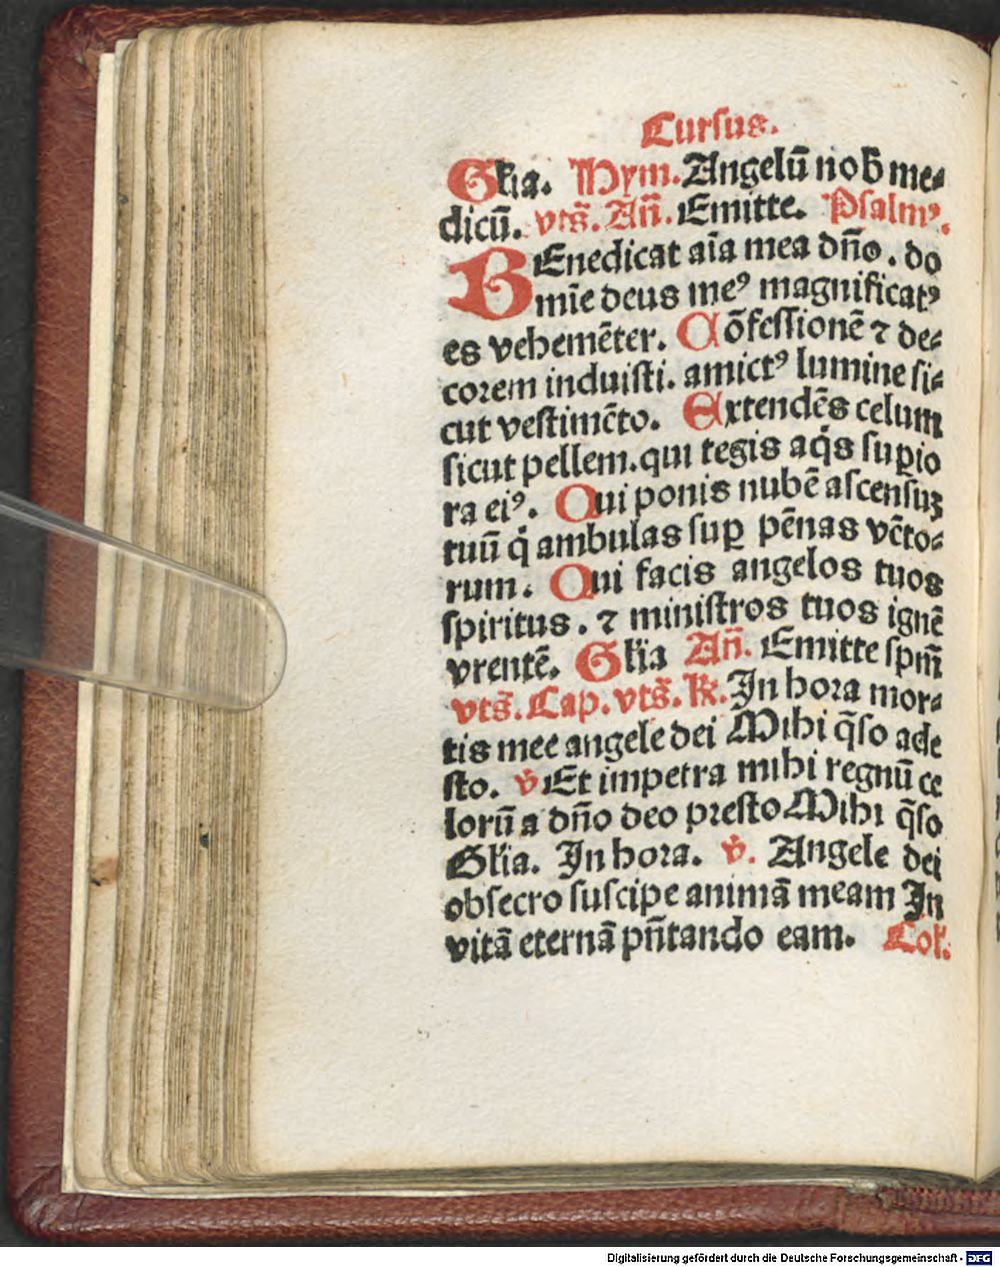 Cursus.
Gl̄ia. Hym. Angelū nob̄ me⸗
dicū. vts̄. An̄. Emitte. Psalmꝰ.
BEnedicat aīa mea dn̄o. do
mīe deus meꝰ magnificatꝰ
es vehemēter. Cōfessionē ⁊ de⸗
corem induisti. amictꝰ lumine si⸗
cut vestimēto. Extendēs celum
sicut pellem. qui tegis aq̄s suꝑio
ra eiꝰ. Qui ponis nubē ascensuꝫ
tuū q̇ ambulas suꝑ pēnas vēto⸗
rum. Qui facis angelos tuos
spiritus. ⁊ ministros tuos ignē
vrentē. Gl̄ia An̄. Emitte spm̄
vts̄. Cap. vts̄. ℟. In hora mor⸗
tis mee angele dei Mihi q̄so ade
sto. ℣ Et impetra mihi regnū ce
lorū a dn̄o deo presto Mihi q̄so
Gl̄ia. In hora. ℣. Angele dei
obsecro suscipe animā meam In
vitā eternā pn̄tando eam. Col̄.
Digitalisierung gefördert durch die Deutsche Forschungsgemeinschaft - DFG